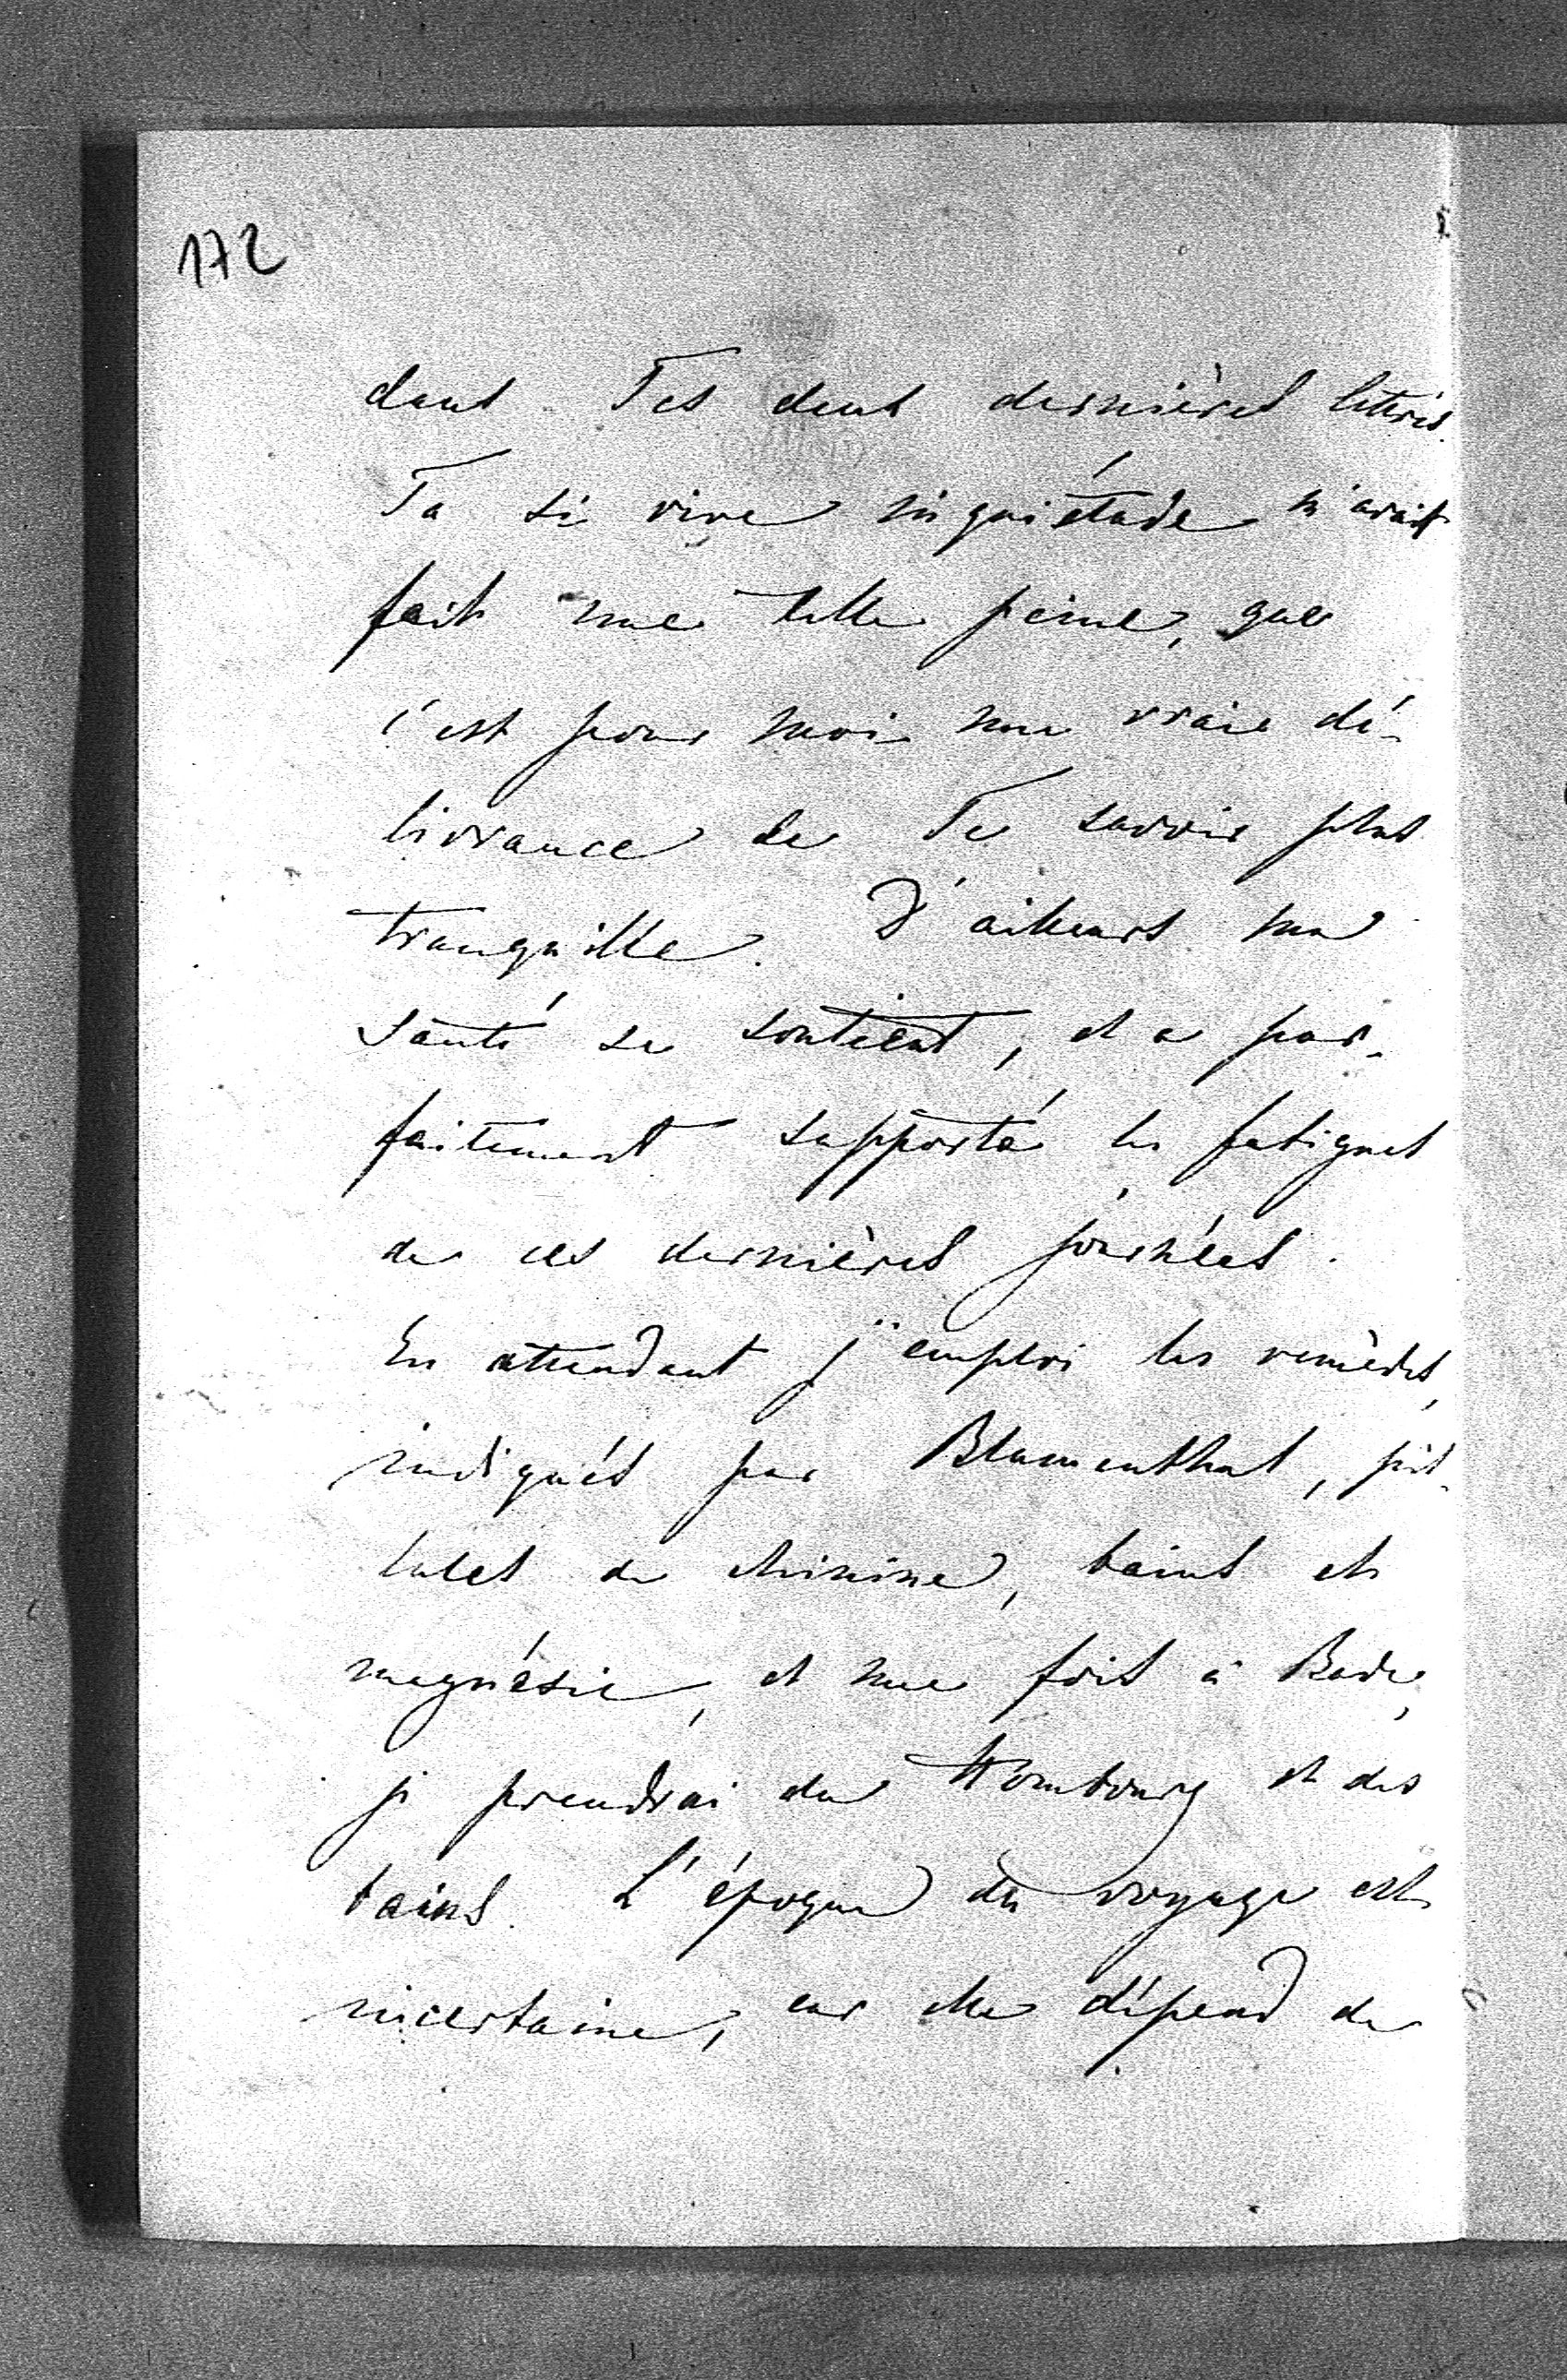 172
dans Tes deux dernières lettres.
Ta si vive inquiétude m'avait
fait une telle peine, que
c'est pour moi une vraie dé-
livrance de Te savoir plus
tranquille. D'ailleurs ma
santé se soutient, et a par-
faitement supporté les fatigues
de ces dernières journées.
En attendant j'emploi les remèdes,
indiqués par Blumenthal, pil-
lules de chinine, bains et
magnésie, et une fois à Bade,
je prendrai du Hombourg et des
bains. L'époque du voyage est
incertaine, car elle dépend de